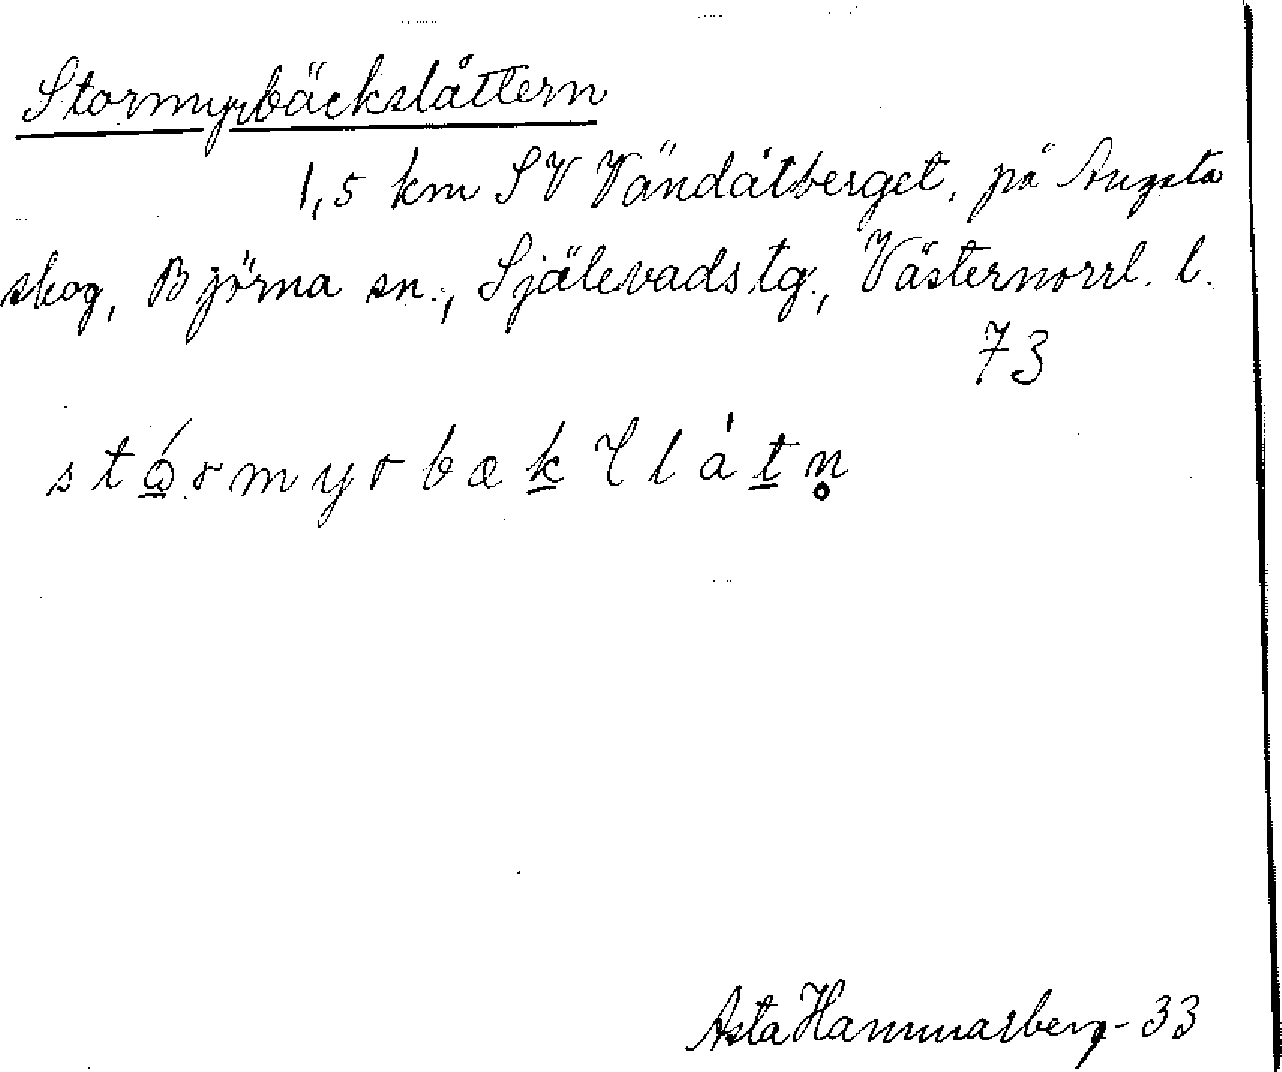 Stormyrbäckslåttern
1,5 km SV Vändåtberget, på Angsta
skog, Björna sn., Själevads tg., Västernorrl. l.
73
stórmyrbækllåtn̥
Asta Hammarberg - 33